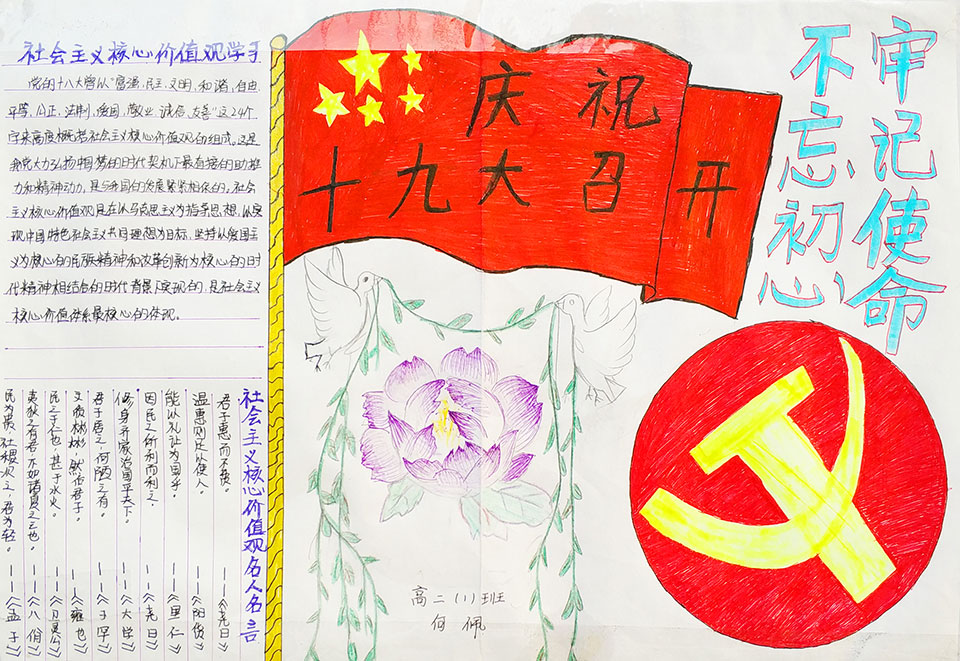 社会主义核心价值观学习
党的十八大曾以"富强、民主、文明、和谐、自由
平等、公正、法制、爱国、敬业、诚信、友善"这24个
字来高度概括社会主义核心价值观的组成。这是
我党大力弘扬中国梦的时代契机下最直接的助推
力和精神动力,是与我国的发展紧紧相依的。社会
主义核心价值观是在以马克思主义为指导思想,以实
现中国特色社会主义共同理想为目标,坚持以爱国主
义为核心的民族精神和改革创新为核心的时
代精神相结合的时代背景下实现的,是社会主义
核心价值体系最核心的体现。
庆祝
十九大召开
牢记使命
不忘初心
社会主义核心价值观名人名言
君子惠而不费。——《尧曰》
温惠则足以使人。——《阳货》
能以礼让为国乎。——《里仁》
因民之所利而利之——《尧曰》
修身齐家治国平天下。——《大学》
君子居之,何陋之有。——《子罕》
文质彬彬,然后君子。——《雍也》
民之于仁也,甚于水火。——《卫灵公》
夷狄之有君,不如诸夏之亡也。——《八佾》
民为贵,社稷次之,君为轻。——《孟子》
高二(1)班
何佩